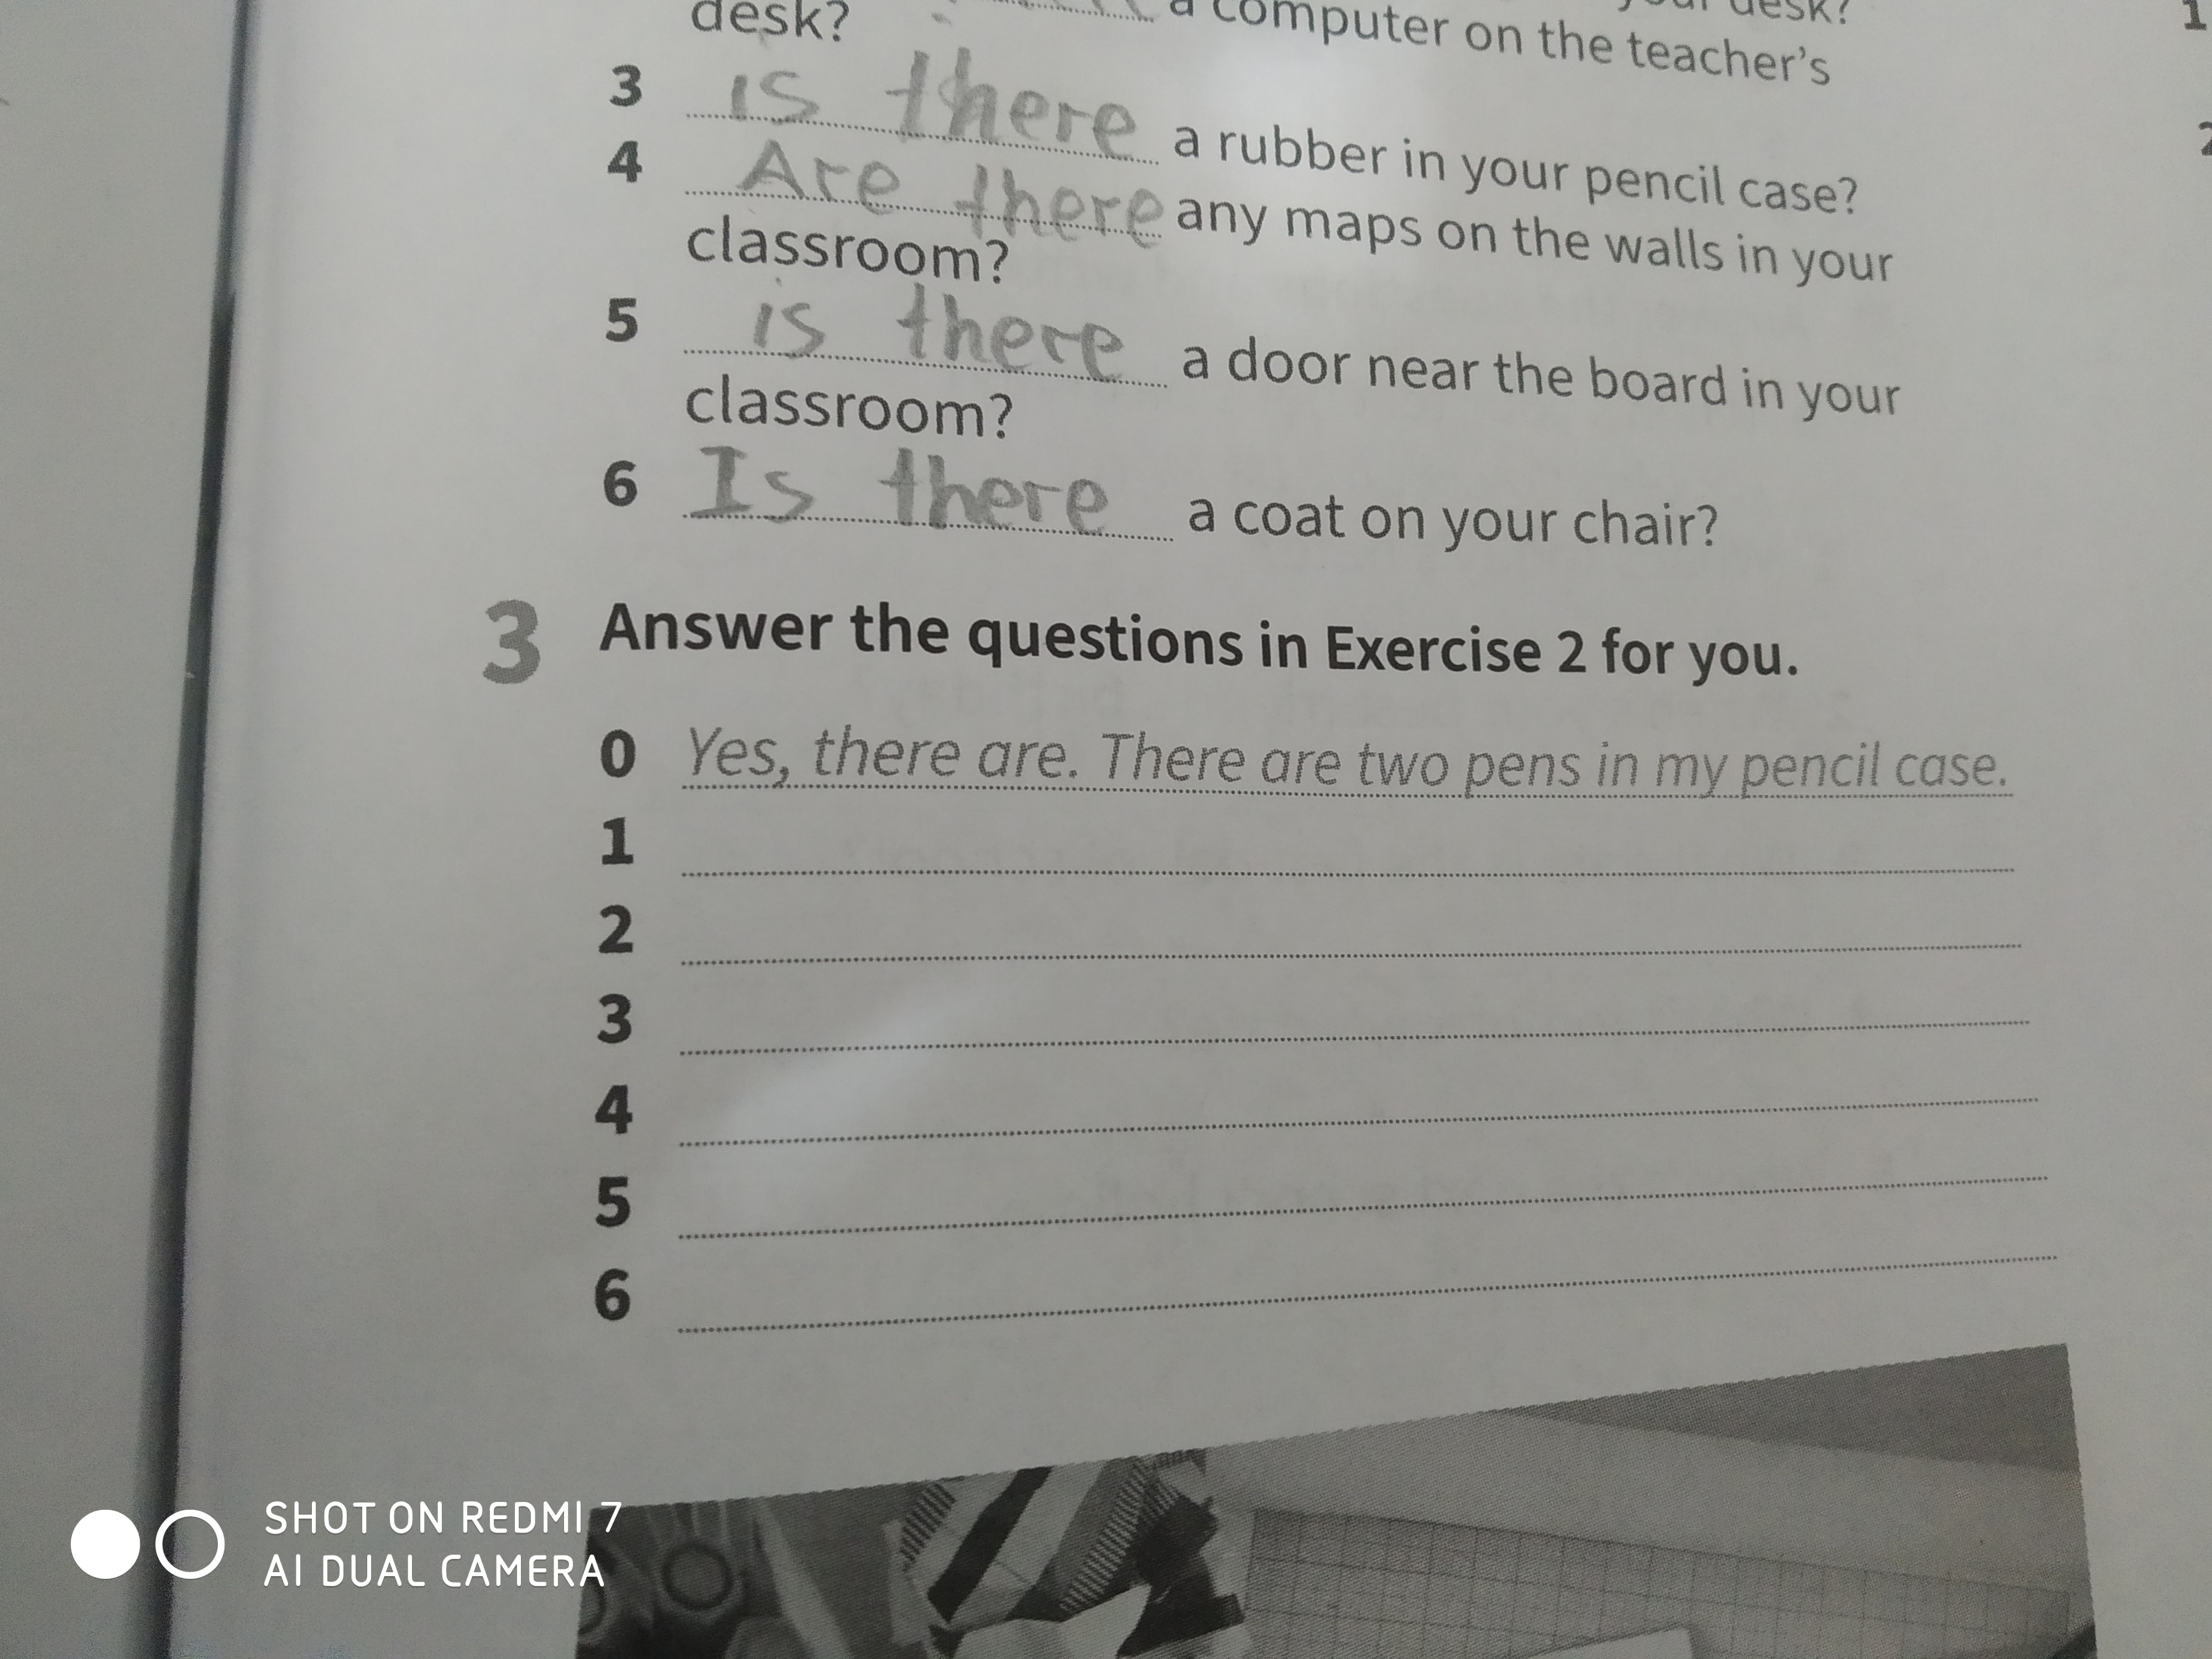 your desk?
desk?
a computer on the teacher's
3 is there a rubber in your pencil case?
4 Are there any maps on the walls in your
classroom?
5 is there a door near the board in your
classroom?
6 Is there a coat on your chair?
3 Answer the questions in Exercise 2 for you.
0 Yes, there are. There are two pens in my pencil case.
1
2
3
4
5
6
SHOT ON REDMI 7
AI DUAL CAMERA